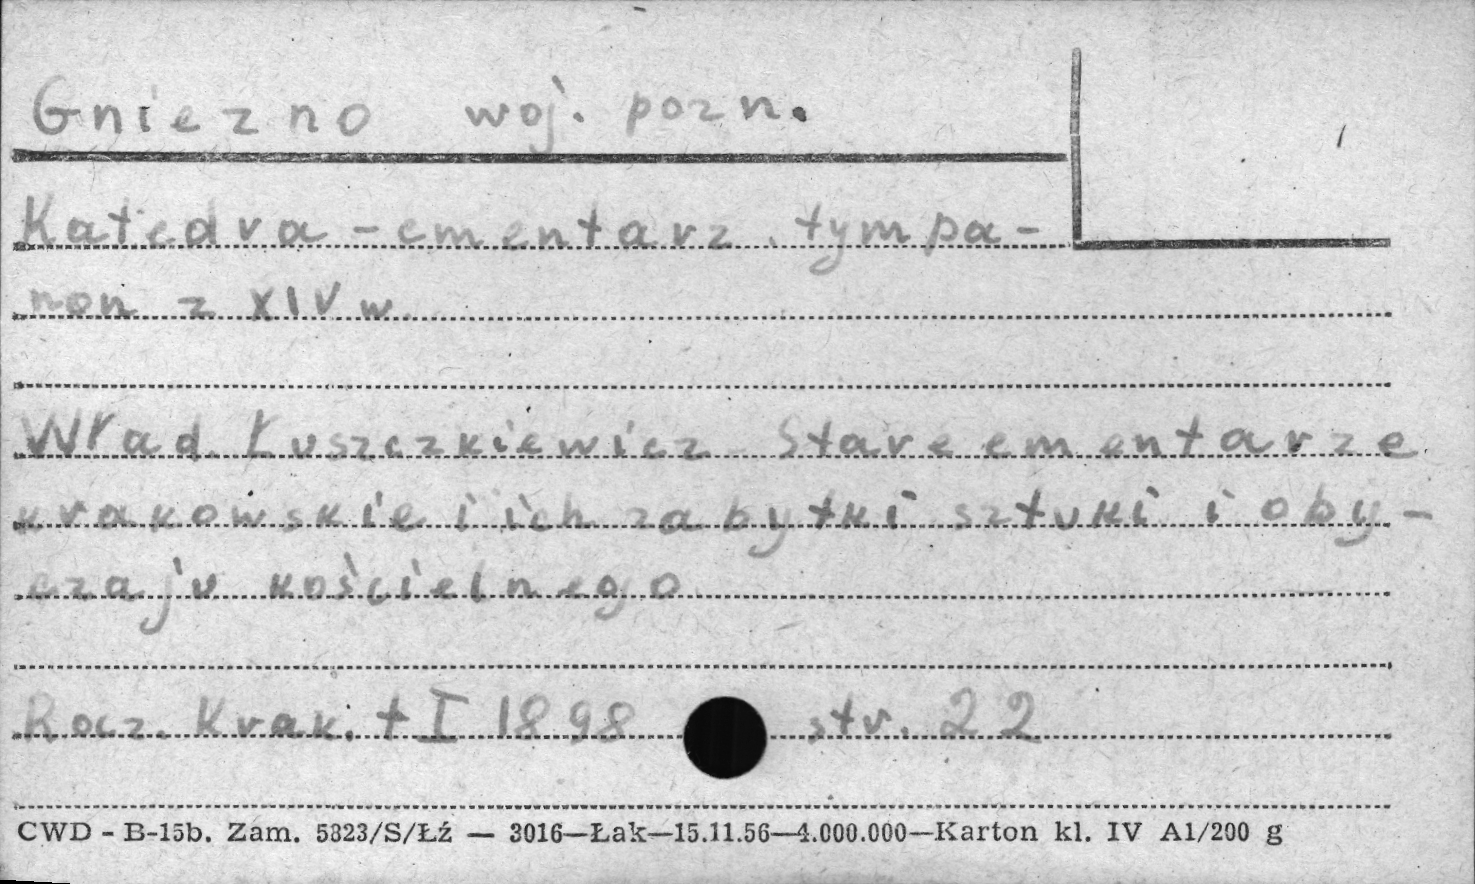 Gniezno woj. pozn.
Katedra - cmentarz. tympa-
non z XIV w.
Wład. Łuszczkiewicz Stare cmentarze
krakowskie i ich zabytki sztuki i oby-
czaju kościelnego
Rocz. Krak. t I 1898 str. 22
CWD - B-15b. Zam. 5823/S/Łź — 3016—Łak—15.11.56—4.000.000—Karton kl. IV A1/200 g